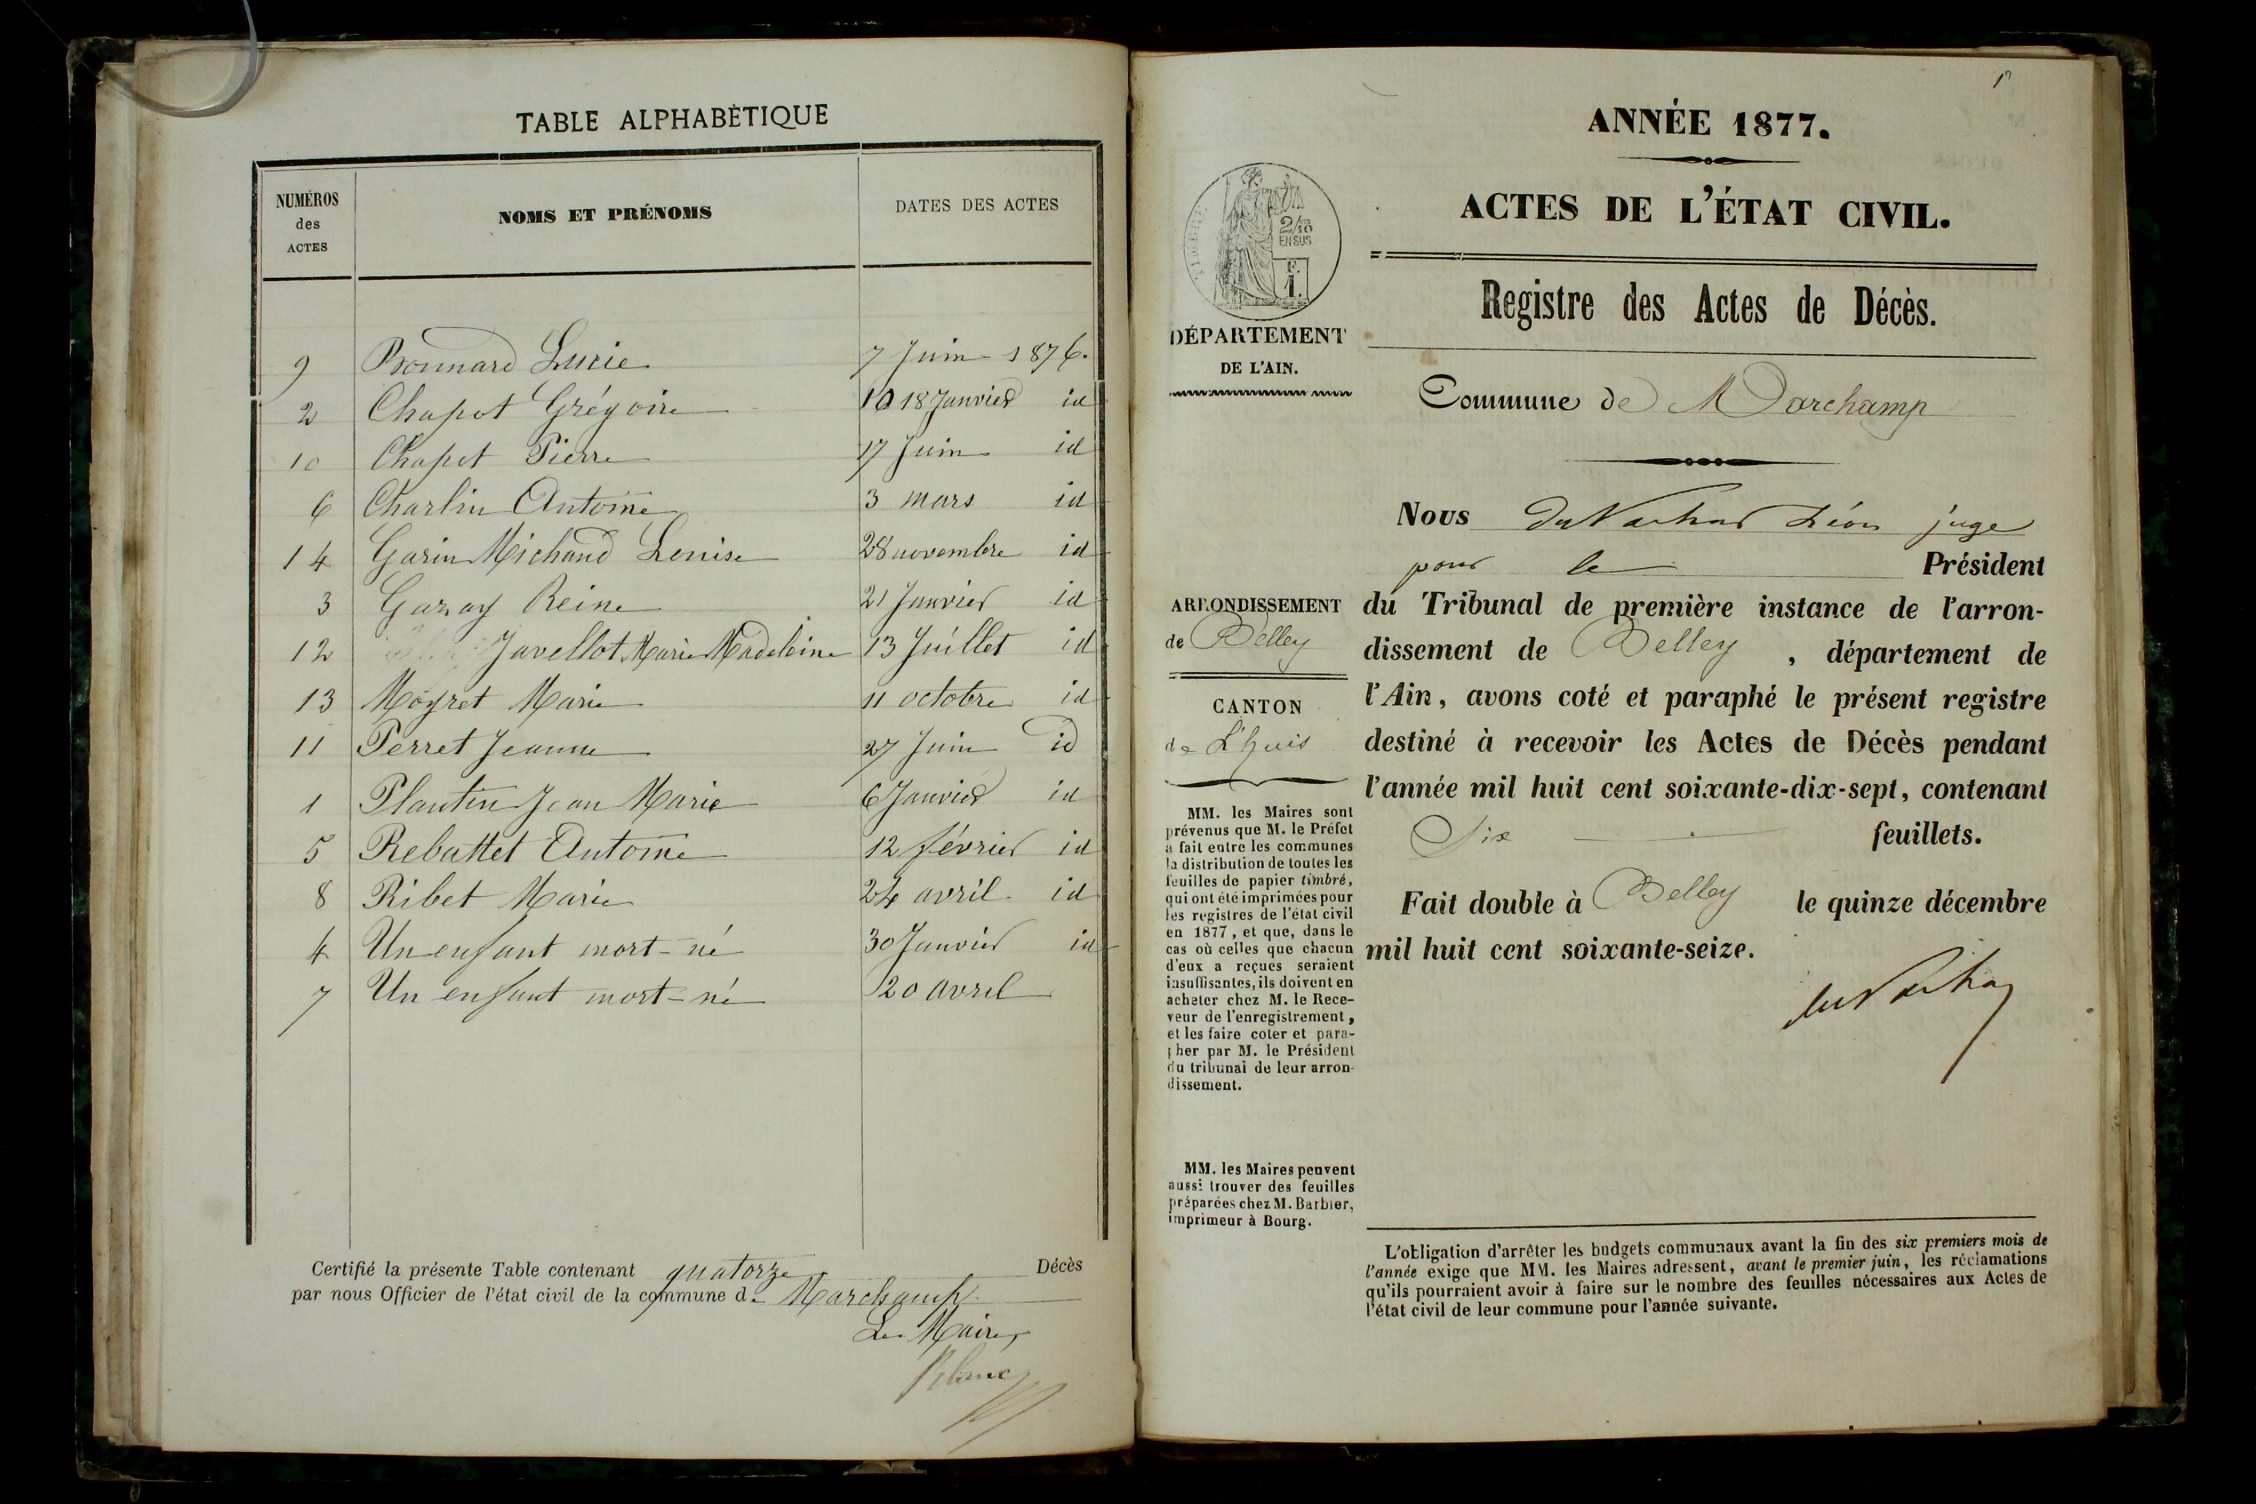 TABLE ALPHABÉTIQUE
NUMÉROS
des
ACTES
NOMS ET PRÉNOMS
DATES DES ACTES
9 Bonnard Lucie 7 Juin 1876.
2 Chapot Grégoire 18 Janvier id
10 Chapot Pierre 17 Juin id
6 Charlin Antoine 3 mars id
14 Garin Michaud Louise 28 novembre id
3 Garay Reine 21 Janvier id
12 Javellot Marie Madeleine 13 Juillet id
13 Moyret Marie 11 octobre id
11 Perret Jeanne 27 Juin id
1 Plantin Jean Marie 6 Janvier id
5 Rebattet Antoine 12 février id
8 Ribet Marie 24 avril id
4 Un enfant mort-né 30 Janvier id
7 Un enfant mort-né 20 avril
Certifié la présente Table contenant quatorze Décès
par nous Officier de l'état civil de la commune de Marchamp
Le Maire,
Blanc
ANNÉE 1877.
ACTES DE L'ÉTAT CIVIL.
Registre des Actes de Décès.
TIMBRE
2/10
EN SUS
F.
1.
DÉPARTEMENT
DE L'AIN.
Commune de Marchamp
Nous Léon juge
pour le Président
du Tribunal de première instance de l'arron-
dissement de Belley, département de
l'Ain, avons coté et paraphé le présent registre
destiné à recevoir les Actes de Décès pendant
l'année mil huit cent soixante-dix-sept, contenant
Six feuillets.
Fait double à Belley le quinze décembre
mil huit cent soixante-seize.
ARRONDISSEMENT
de Belley
CANTON
de L'huis
MM. les Maires sont
prévenus que M. le Préfet
a fait entre les communes
la distribution de toutes les
feuilles de papier timbré,
qui ont été imprimées pour
les registres de l'état civil
en 1877, et que, dans le
cas où celles que chacun
d'eux a reçues seraient
insuffisantes, ils doivent en
acheter chez M. le Rece-
veur de l'enregistrement,
et les faire coter et para-
pher par M. le Président
du tribunal de leur arron-
dissement.
MM. les Maires peuvent
aussi trouver des feuilles
préparées chez M. Barbier,
imprimeur à Bourg.
L'obligation d'arrêter les budgets communaux avant la fin des six premiers mois de
l'année exige que MM. les Maires adressent, avant le premier juin, les réclamations
qu'ils pourraient avoir à faire sur le nombre des feuilles nécessaires aux Actes de
l'état civil de leur commune pour l'année suivante.